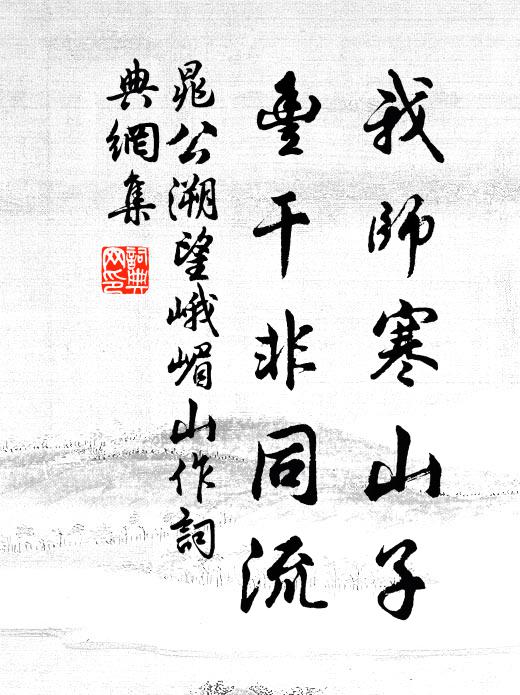 我師寒山子
豐干非同流
晁公溯望峨嵋山作詞
典網集
詞典
網印